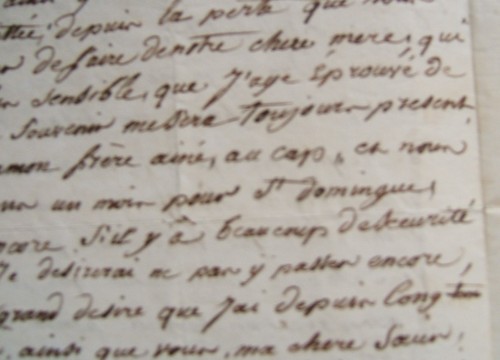 depuis la perte que nous
de faire de notre chere mere, qui
sensible, que J'aye Éprouvé de
Souvenir me sera Toujours present
amon frère ainé, au cap, et nous
un mois pour St domingue,
S'il y à beaucoup de Seurité
Je desirerai ne pas y passer encore,
grand desire que J'ai depuis long tems
ainsi que vous, ma chere Sœur,